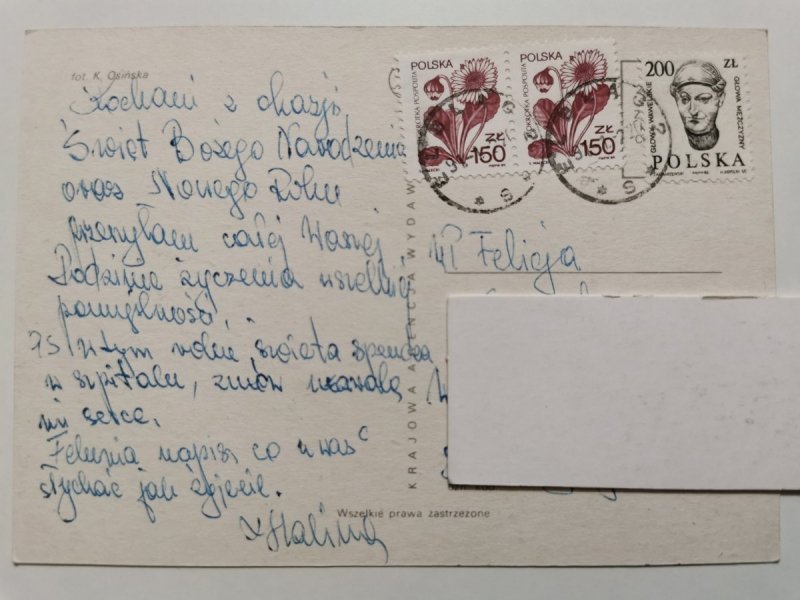 fot. K. Osińska
Kochani z okazji
Świąt Bożego Narodzenia
oraz Nowego Roku
przesyłam całej Waszej
Rodzinie życzenia wszelkiej
pomyślności.
W tym roku święta spędzę
w szpitalu, znów nawala
mi serce.
Felunia napisz co u was
słychać jak żyjecie.
Halina
KRAJOWA AGENCJA WYDAW
Wszelkie prawa zastrzeżone
POLSKA
STOKROTKA POSPOLITA
150 ZŁ
POLSKA
STOKROTKA POSPOLITA
150 ZŁ
200 ZŁ
GŁOWY WAWELSKIE
GŁOWA MĘŻCZYZNY
POLSKA
Felicja